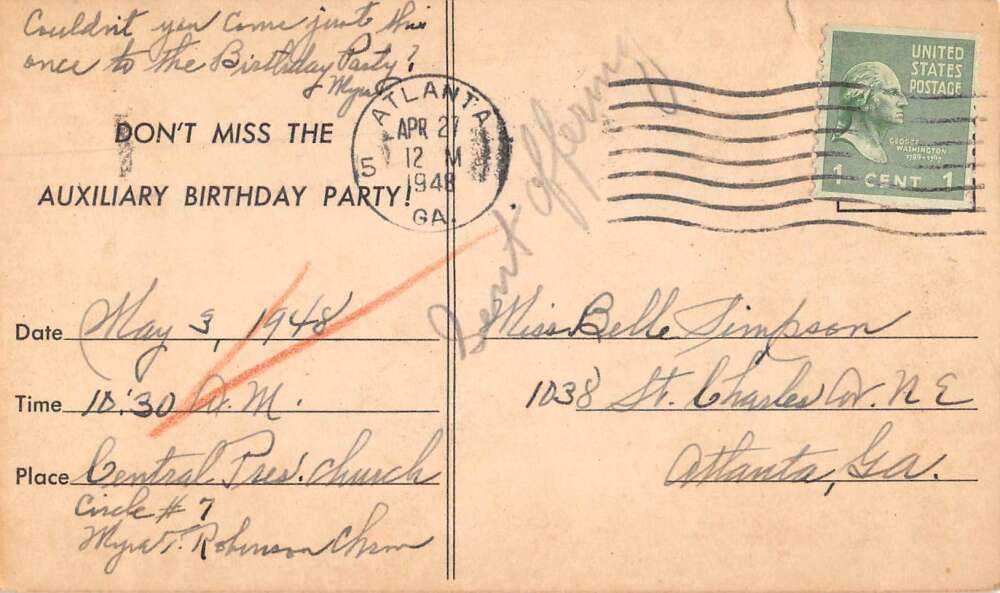 Couldn't you come just this
once to the Birthday Party?
Myra
DON'T MISS THE
AUXILIARY BIRTHDAY PARTY!
Date May 3, 1948
Time 10:30 A.M.
Place Central Pres. Church
Circle # 7
Myra T. Robinson Chrm
ATLANTA
APR 27
12 M
1948
5
GA.
Sent offering
UNITED
STATES
POSTAGE
GEORGE
WASHINGTON
1789-1797
1 CENT 1
Miss Belle Simpson
1038 St. Charles Av. N E
Atlanta, Ga.